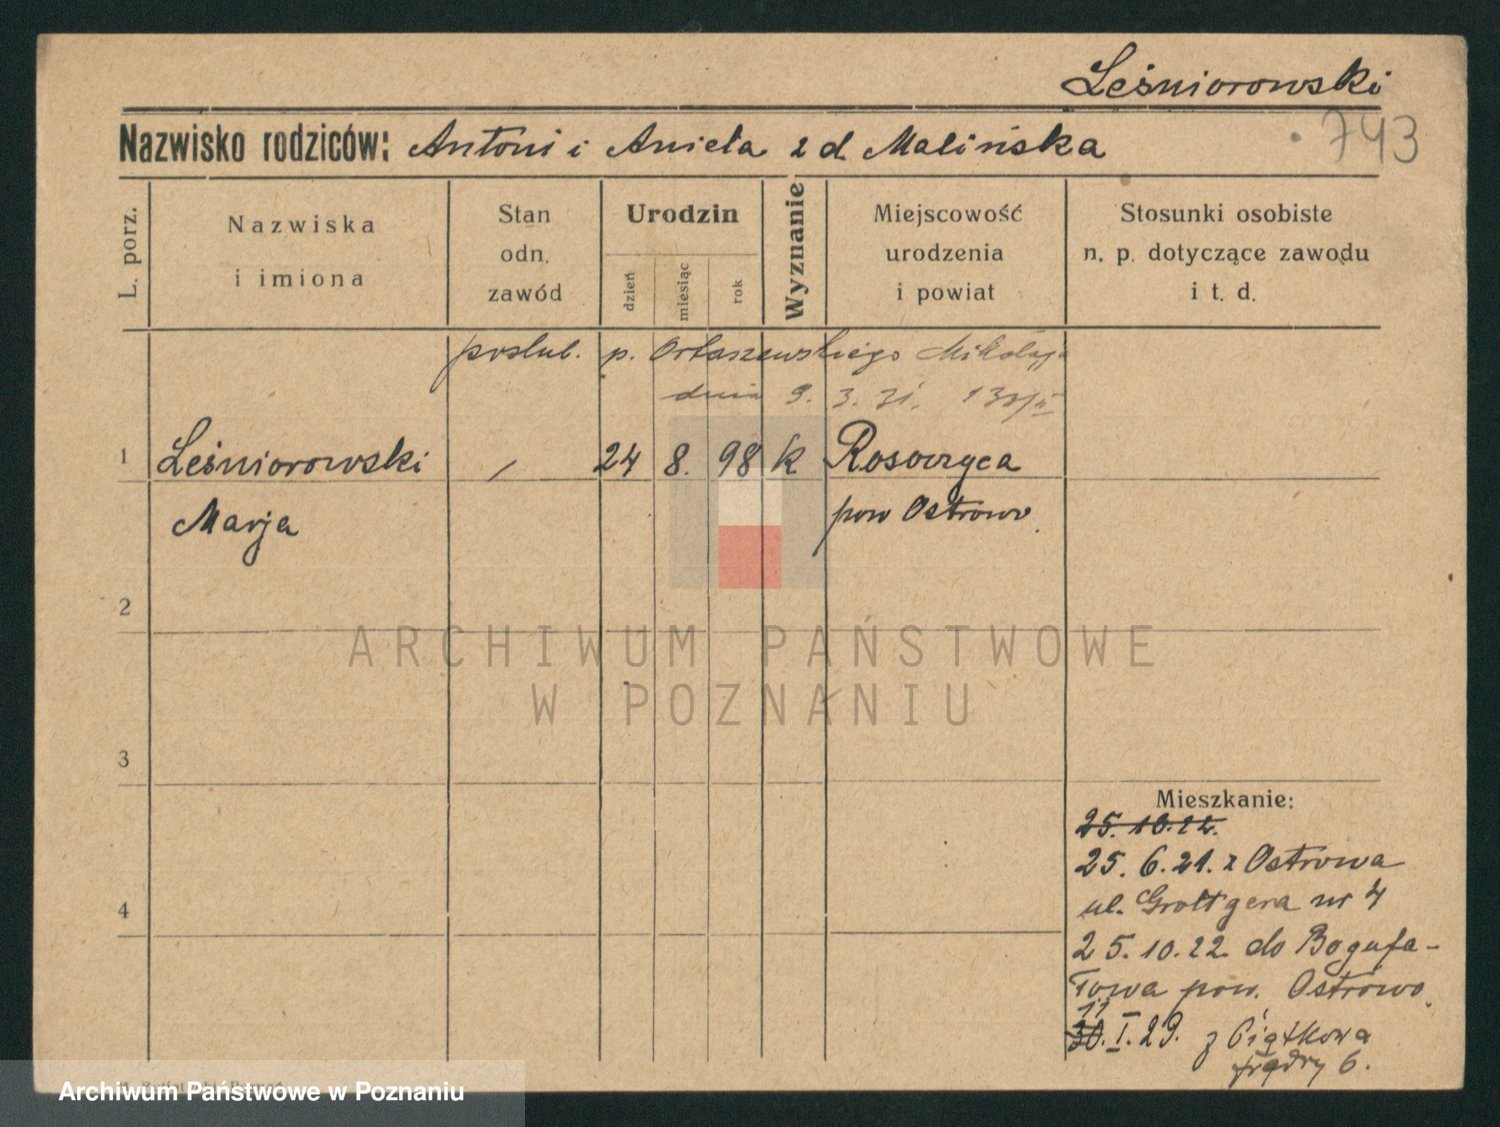 Leśniorowski
Nazwisko rodziców: Antoni i Aniela z d. Malińska
743
L. porz.
Nazwiska
i imiona
Stan
odn.
zawód
Urodzin
dzień
miesiąc
rok
Wyznanie
Miejscowość
urodzenia
i powiat
Stosunki osobiste
n. p. dotyczące zawodu
i t. d.
poślub. p. Orłaszewskiego Mikołaja
dnia 9. 3. 31.
1 Leśniorowski / 24 8. 98 k Rososzyca
Marja pow Ostrowo.
2
3
4
Mieszkanie:
25. 10. 22.
25. 6. 21. z Ostrowa
ul. Grottgera nr 4
25. 10. 22 do Bogufa-
łowa pow. Ostrowo.
11
30. I. 29. z Piątkowa
6.
ARCHIWUM PAŃSTWOWE
W POZNANIU
Archiwum Państwowe w Poznaniu